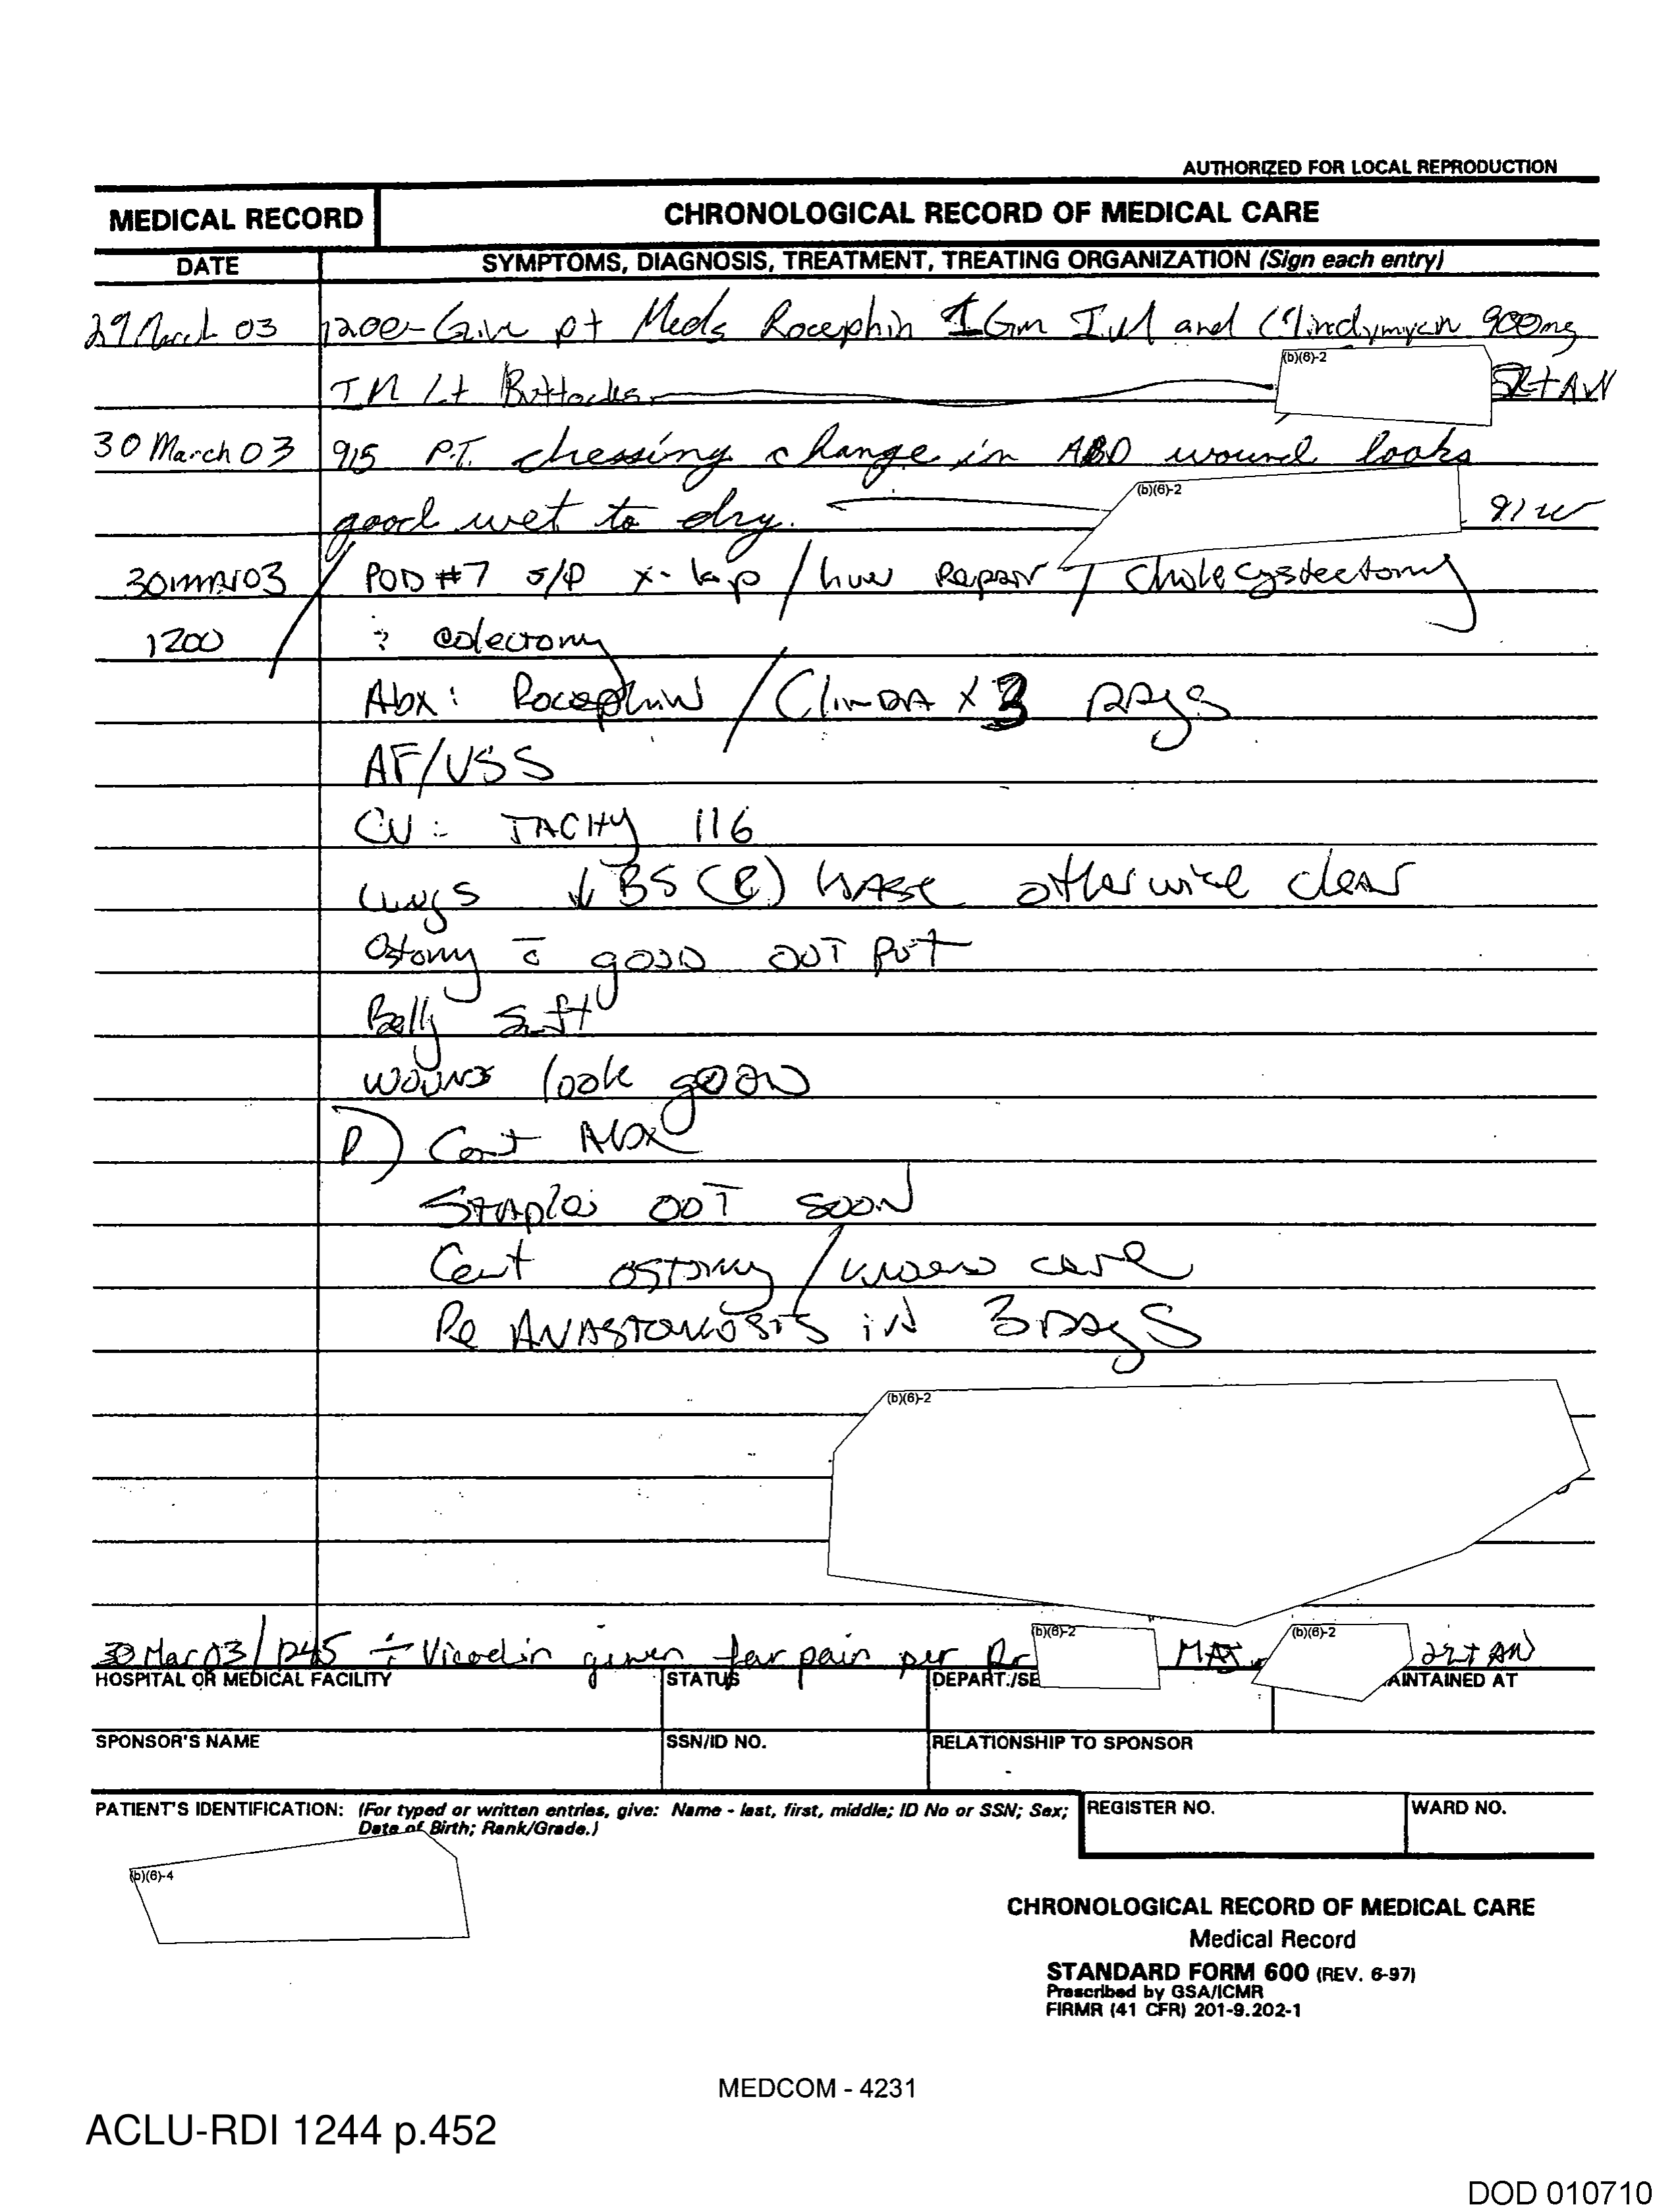 AUTHORIZED FOR LOCAL REPRODUCTION
MEDICAL RECORD
CHRONOLOGICAL RECORD OF MEDICAL CARE
DATE
SYMPTOMS, DIAGNOSIS, TREATMENT, TREATING ORGANIZATION (Sign each entry)
29 March 03 1200- Give pt Meds Rocephin 1 Gm IM and Clindymycin 900mg
IM Lt Buttocks (b)(6)-2
30 March 03 915 P.T. dressing change in ABD wound looks
good wet to dry. (b)(6)-2 91w
30 MAR 03 / POD #7 s/p x-lap / liver Repair / Cholecystectomy
1200 ? colectomy
Abx: Rocephin / Clinda x 3 days
AF/VSS
CV: TACHY 116
Lungs ↓ BS (R) base otherwise clear
Ostomy c̄ good output
Belly soft
wounds look good
P) Cont Abx
Staples out soon
Cont ostomy / wound care
Re Anastomosis in 3 days
(b)(6)-2
30 Mar 03/1245 Vicodin given for pain per Dr (b)(6)-2 (b)(6)-2
HOSPITAL OR MEDICAL FACILITY
STATUS
DEPART./SE
AINTAINED AT
SPONSOR'S NAME
SSN/ID NO.
RELATIONSHIP TO SPONSOR
PATIENT'S IDENTIFICATION: (For typed or written entries, give: Name - last, first, middle; ID No or SSN; Sex;
Date of Birth; Rank/Grade.)
REGISTER NO.
WARD NO.
(b)(6)-4
CHRONOLOGICAL RECORD OF MEDICAL CARE
Medical Record
STANDARD FORM 600 (REV. 6-97)
Prescribed by GSA/ICMR
FIRMR (41 CFR) 201-9.202-1
MEDCOM - 4231
ACLU-RDI 1244 p.452
DOD 010710